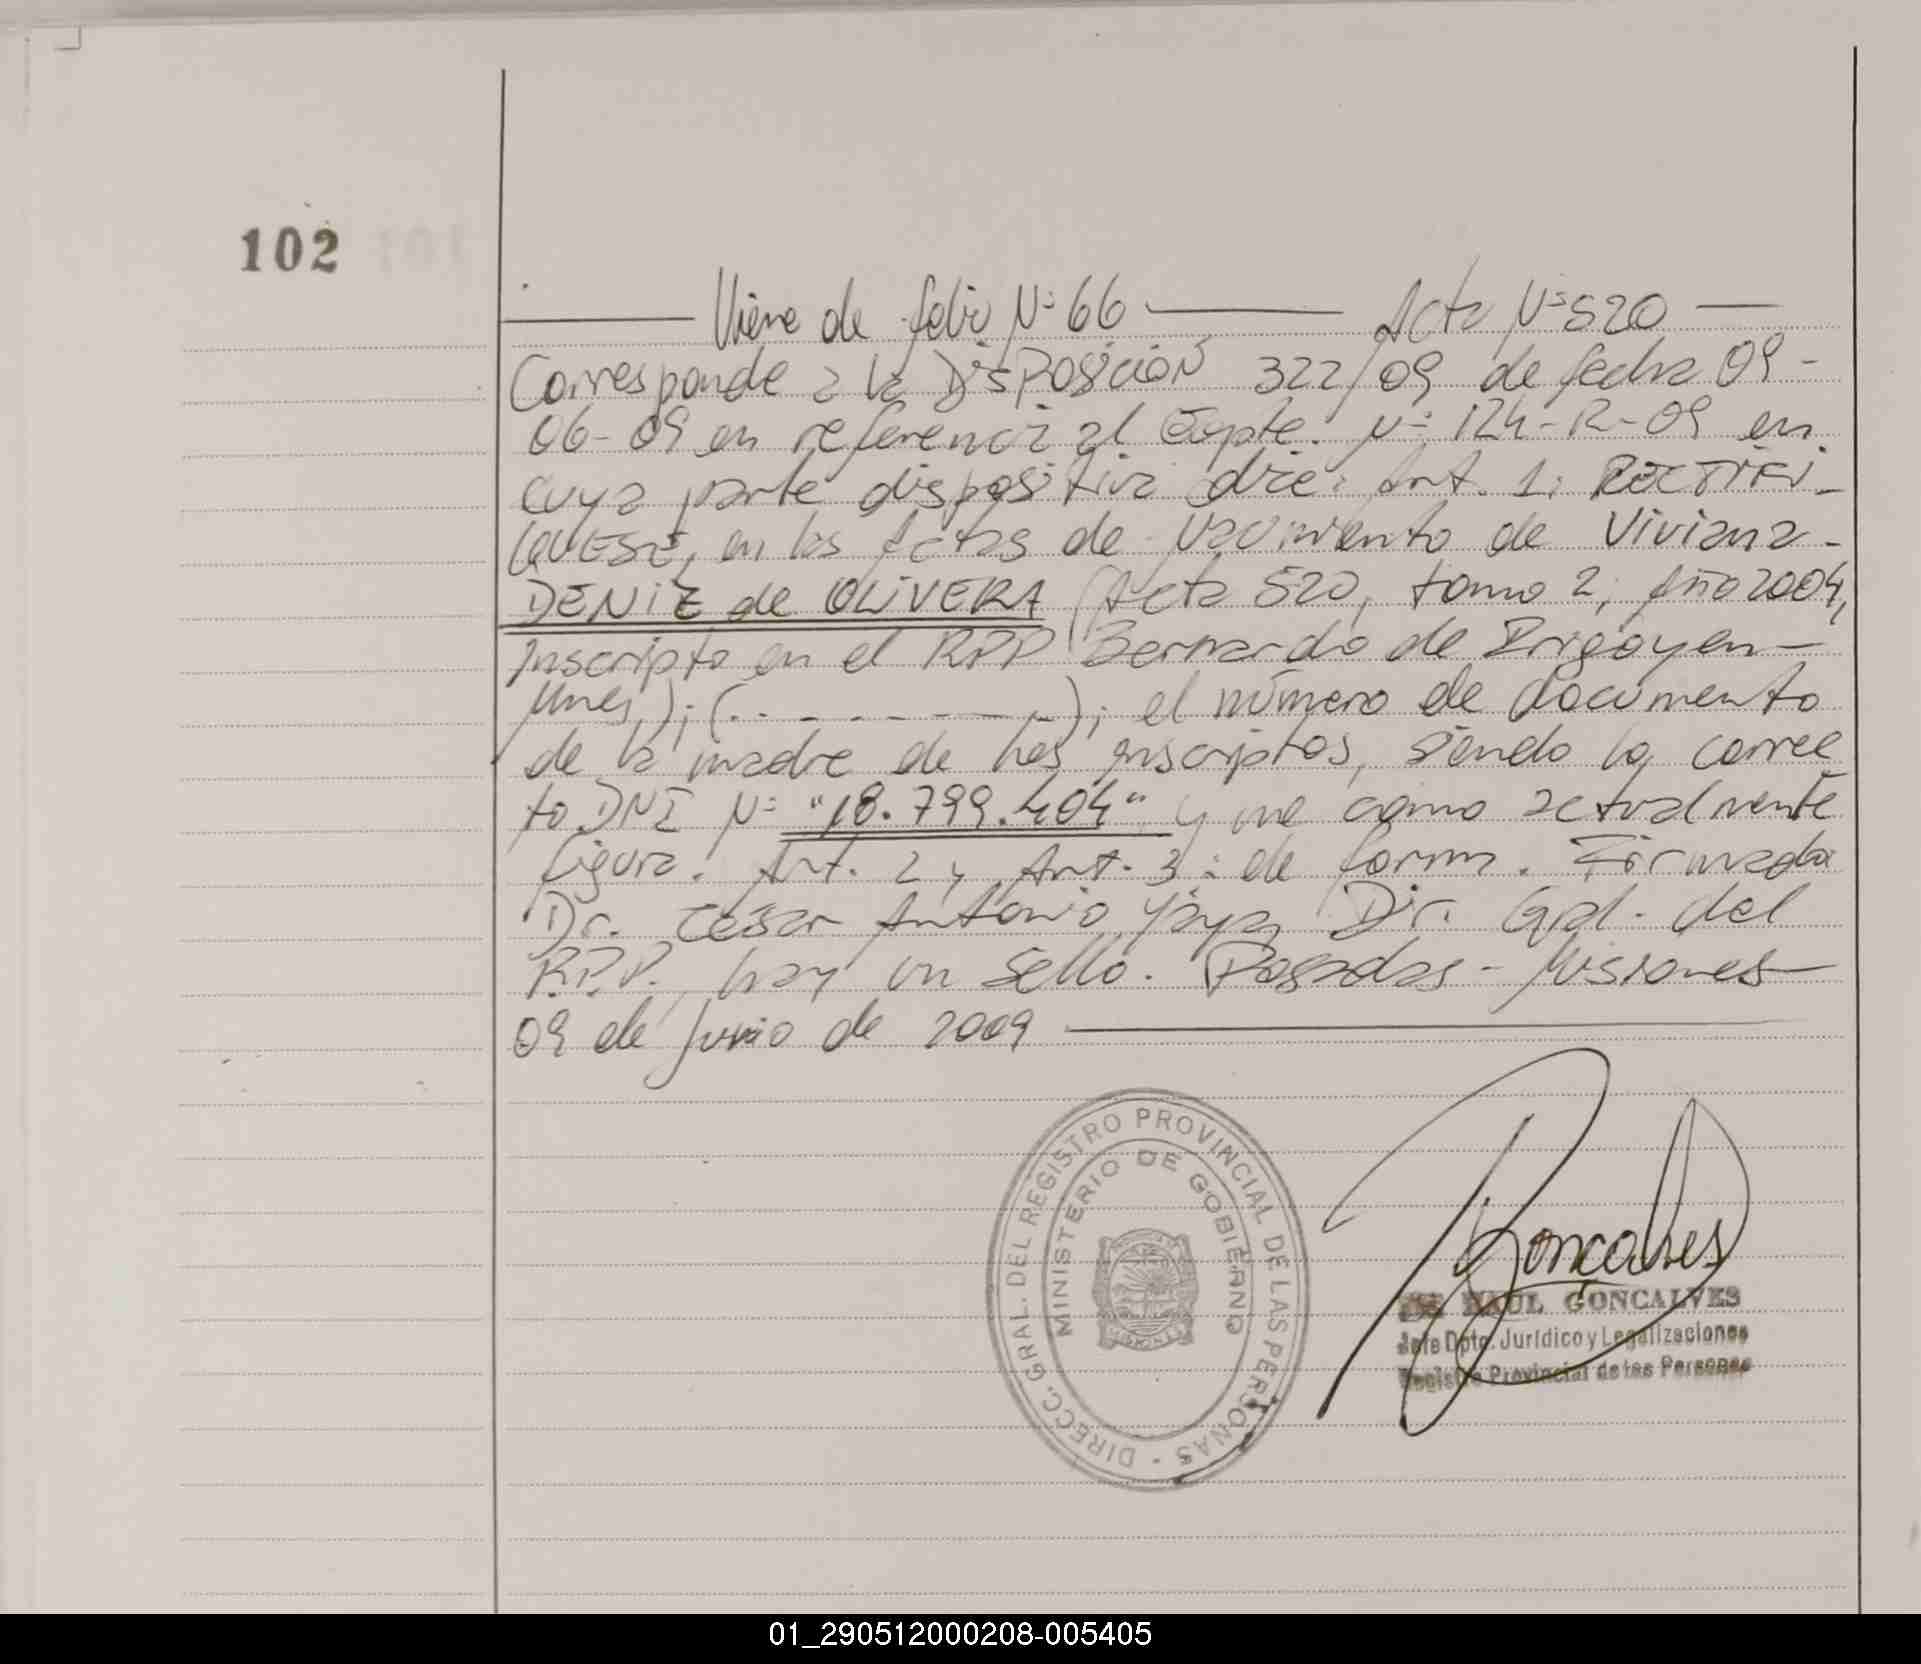 102
Viene de folio Nº 66 Acta Nº 520
Corresponde a la DisPosición 322/09 de fecha 09-
06-09 en referencia al Expte. Nº 124-R-09 en
cuya parte dispositiva dice: Art. 1: RECTIFI-
QUESE, en las Actas de Nacimiento de Viviana-
DENIZ de OLIVERA (Acta 520, tomo 2, Año 2004,
Inscripta en el RPP Bernardo de Irigoyen-
Mnes,); (. - - - - - -); el número de documento
de la madre de los inscriptos, siendo lo correc
to DNI Nº "18.799.404" y no como actualmente
figura. Art. 2 y Art. 3: de forma. Firmado
Dr. Cesar Antonio Yaya, Dir. Gral. del
R.P.P. hay un sello. Posadas - Misiones
09 de Junio de 2009
DIRECC. GRAL. DEL REGISTRO PROVINCIAL DE LAS PERSONAS -
MINISTERIO DE GOBIERNO
MISIONES
Goncalves
RAUL GONCALVES
Jefe Dpto. Jurídico y Legalizaciones
Registro Provincial de las Personas
01_290512000208-005405